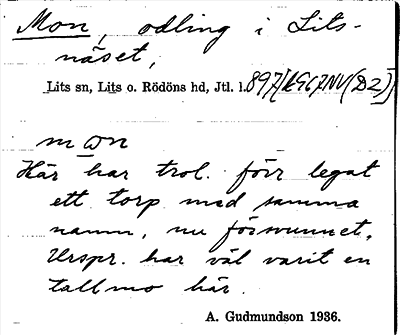 Mon, odling i Lits-
näset,
Lits sn, Lits o. Rödöns hd, Jtl. l. 897/[19G7NV(D2)]
mɷn
Här har trol. förr legat
ett torp med samma
namn, nu försvunnet.
Urspr. har väl varit en
tallmo här.
A. Gudmundson 1936.